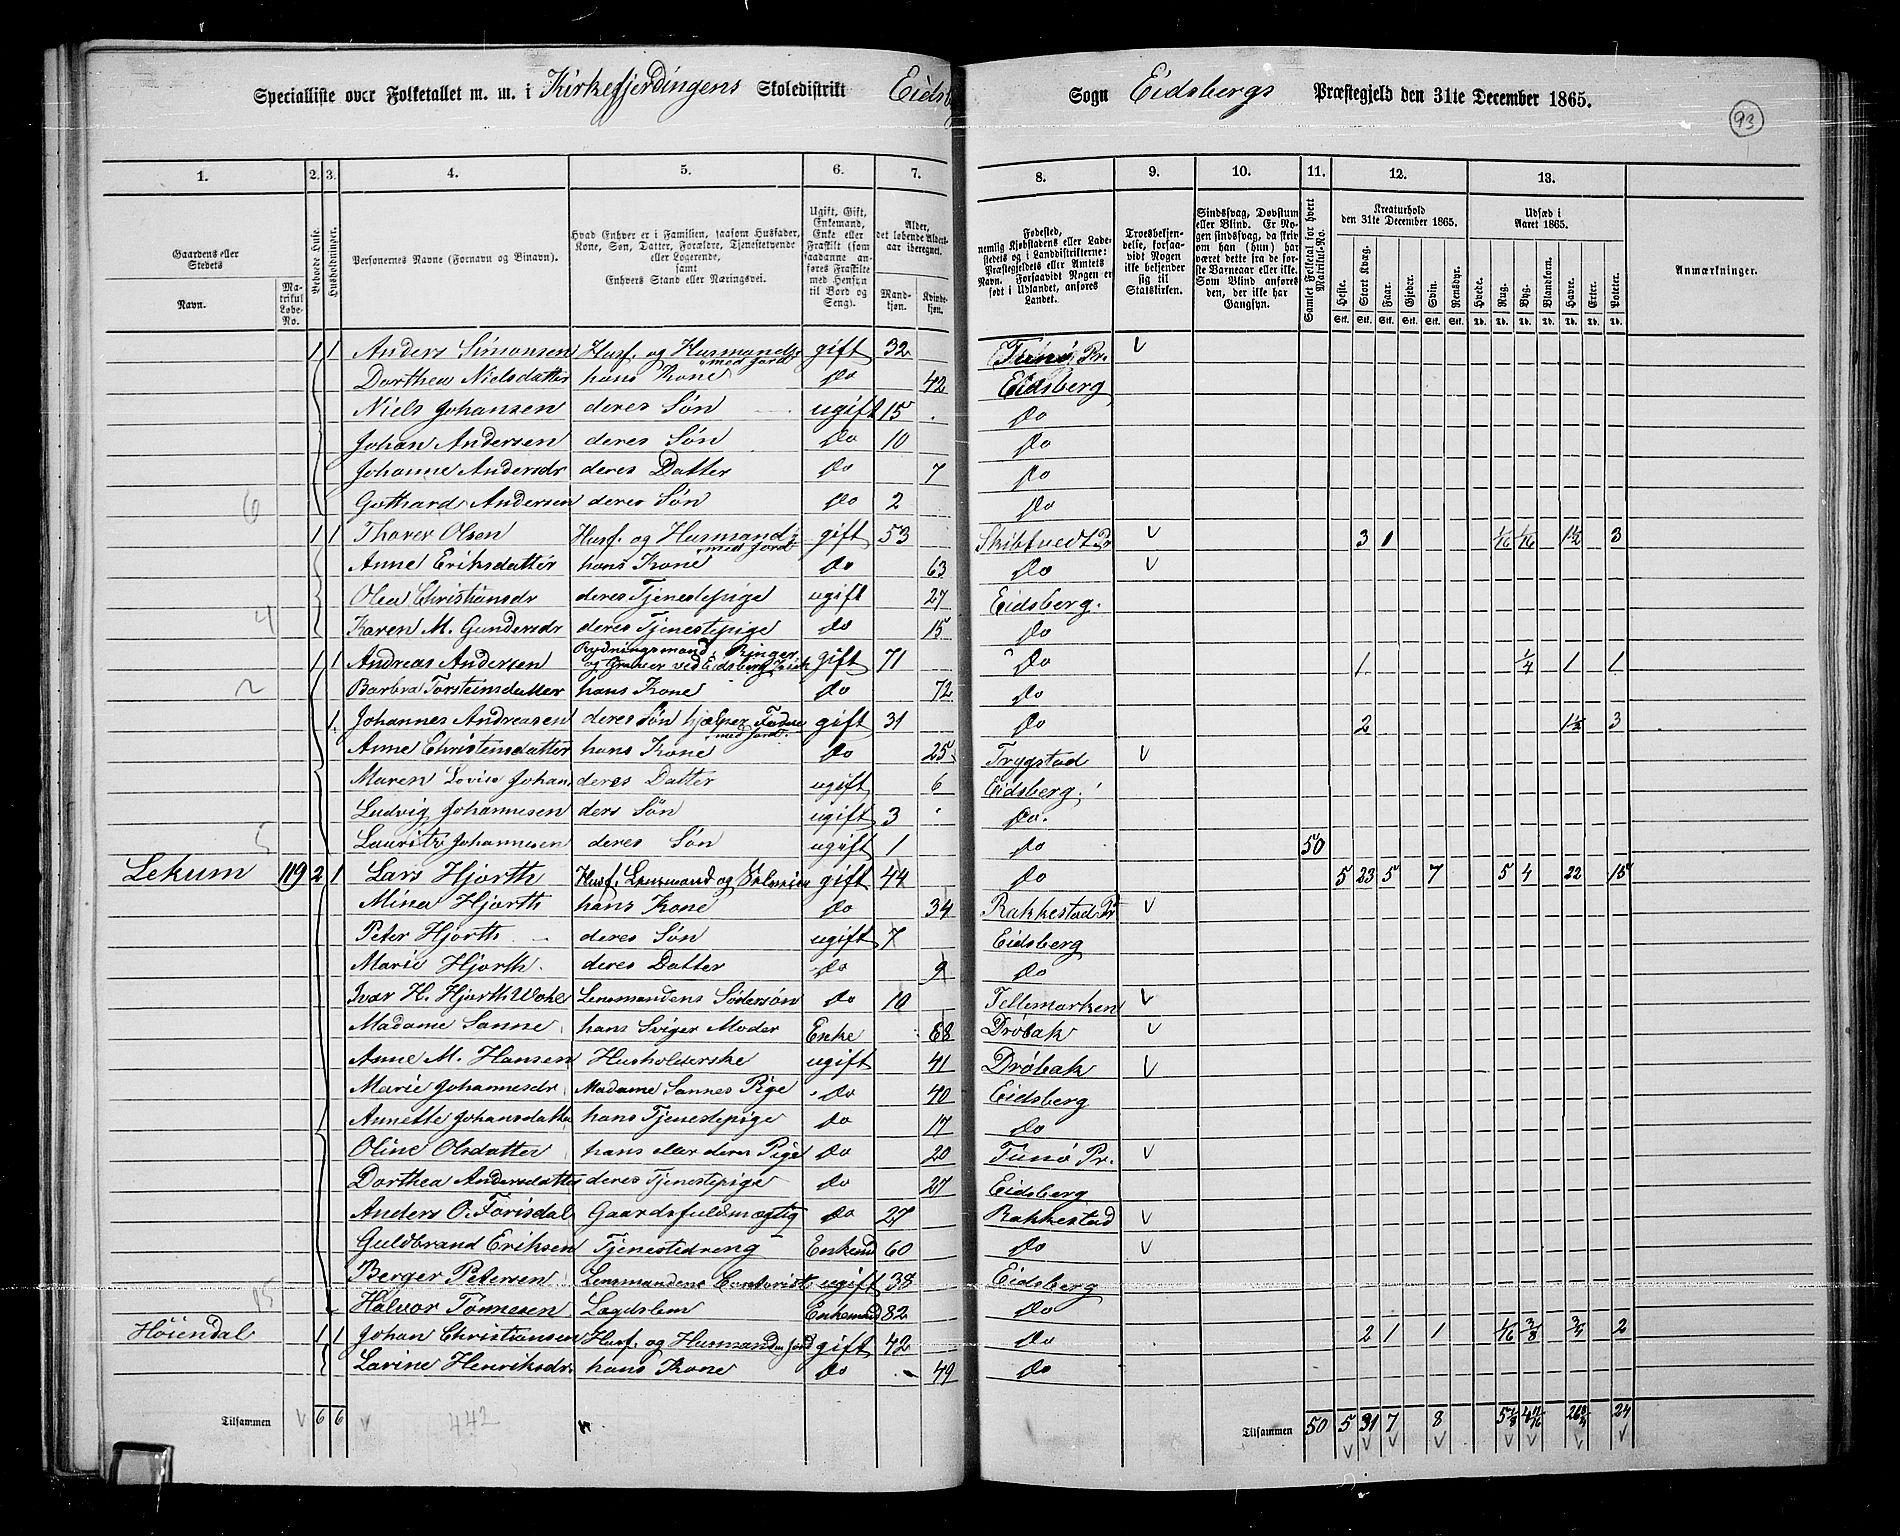 Specialliste over Folketallet m. m. i Kirkefjerdingens Skoledistrikt Eidsb
Sogn Eidsbergs Præstegjeld den 31te December 1865.
93
1. 2. 3. 4. 5. 6. 7. 8. 9. 10. 11. 12. 13.
Gaardens eller Stedets
Navn.
Matrikul Løbe-No.
Beboede Huse.
Husholdninger.
Personernes Navne (Fornavn og Binavn).
Hvad Enhver er i Familien, saasom Husfader, Kone, Søn, Datter, Forældre, Tjenestetyende eller Logerende, samt Enhvers Stand eller Næringsvei.
Ugift, Gift, Enkemand, Enke eller Fraskilt (som saadanne anføres Fraskilte med Hensyn til Bord og Seng).
Alder, det løbende Aldersaar iberegnet.
Mandkjøn. Kvindekjøn.
Fødested, nemlig Kjøbstadens eller Ladestedets og i Landdistrikterne: Præstegjeldets eller Amtets Navn. Forsaavidt Nogen er født i Udlandet, anføres Landet.
Troesbekjendelse, forsaavidt Nogen ikke bekjender sig til Statskirken.
Sindssvag, Døvstum eller Blind. Er Nogen sindssvag, da skrives om han (hun) har været dette fra de første Barneaar eller ikke. Som Blind anføres den, der ikke har Gangsyn.
Samlet Folketal for hvert Matrikul-No.
Kreaturhold den 31te December 1865.
Heste. Stort Kvæg. Faar. Gjeder. Svin. Rensdyr.
Udsæd i Aaret 1865.
Hvede. Rug. Byg. Blandkorn. Havre. Erter. Poteter.
Anmærkninger.
1 1 Anders Simonsen Husf. og Husmand med Jord gift 32 Tunø Pr. v
Dorthea Nielsdatter hans Kone do 42 Eidsberg
Niels Johansen deres Søn ugift 15 do
Johan Andersen deres Søn do 10 do
Johanne Andersdr deres Datter do 7 do
6 Gothard Andersen deres Søn do 2 do
1 1 Thorer Olsen Husf. og Husmand med Jord gift 53 Skibtvedt Pr v 3 1 1/16 1/16 1 1/2 3
Anne Eriksdatter hans Kone do 63 do v
Olea Christiansdr deres Tjenestepige ugift 27 Eidsberg.
4 Karen M. Gundersdr deres Tjenestepige do 15 do
1 1 Andreas Andersen Rydningsmand, Ringer og Graver ved Eidsberg Kirk gift 71 do 1 1/4 1 1
2 Barbra Torsteinsdatter hans Kone do 72 do
1 Johannes Andreasen deres Søn hjælper Fader med Jord. gift 31 do 2 1 1/2 3
Anne Christensdatter hans Kone do 25 Trygstad v
Maren Lovise Johan. deres Datter ugift 6 Eidsberg.
Ludvig Johannesen ders Søn ugift 3 do.
5 Lauritz Johannesen deres Søn ugift 1 do 50
Lekum 119 2 1 Lars Hjorth Husf. Lensmand og Selveier gift 44 do 5 23 5 7 5 4 22 15
Mina Hjorth hans Kone do 34 Rakkestad Pr v
Peter Hjorth deres Søn ugift 7 Eidsberg
Marie Hjorth. deres Datter do 9 do
Ivar H. Hjorth Wohe Lensmandens Södersön do 10 Tellemarken v
Madame Sanne hans Sviger Moder Enke 68 Drøbak v
Anne M. Hansen Husholderske ugift 41 Drøbak v
Marie Johannesdr Madame Sannes Pige do 40 Eidsberg
Annette Johansdatter hans Tjenestepige do 17 do
Oline Olsdatter hans eller deres Pige do 20 Tunø Pr. v
Dorthea Andersdatter deres Tjenestepige do 27 Eidsberg
Anders O. Forisdal Gaardsfuldmægtig do 27 Rakkestad v
Guldbrand Eriksen Tjenestedreng Enkemd 60 do v
Berger Petersen Lensmandens Contorist ugift 38 Eidsberg
15 Halvor Tønnesen Lægdslem Enkemand 82 do
Höiendal 1 1 Johan Christiansen Husf. og Husmand m Jord gift 42 do 2 1 1 1/16 3/8 3/4 2
Lavine Henriksdr. hans Kone do 49 do
Tilsammen v 6 6 v 442
Tilsammen 50 5 31 7 8 5 1/8 4 11/16 26 3/4 24